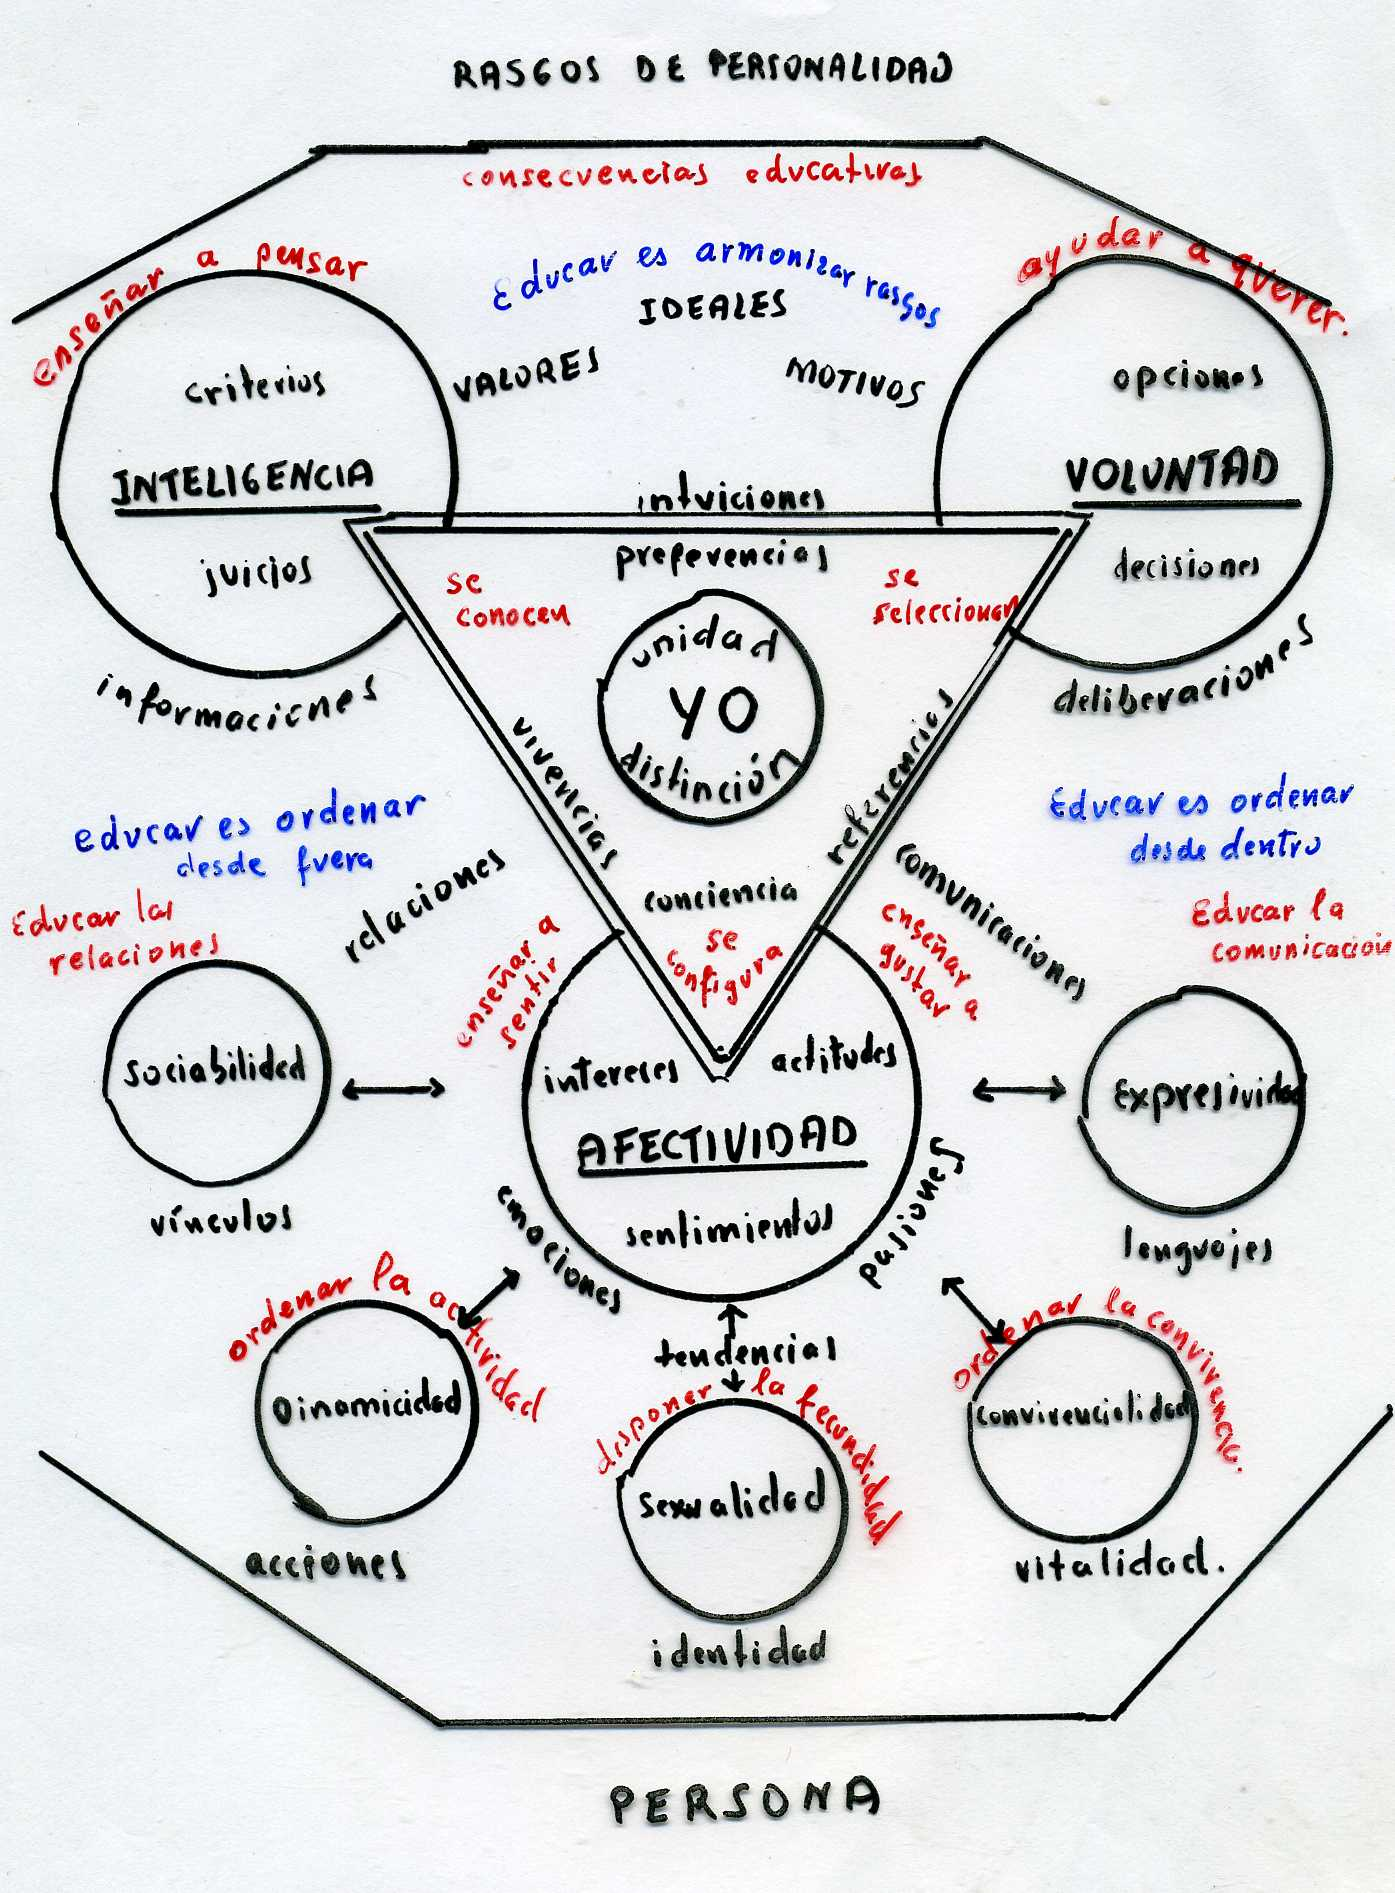 RASGOS DE PERSONALIDAD
consecuencias educativas
enseñar a pensar
Educar es armonizar rasgos
ayudar a querer.
IDEALES
VALORES
MOTIVOS
criterios
INTELIGENCIA
juicios
informaciones
opciones
VOLUNTAD
decisiones
deliberaciones
intuiciones
preferencias
se
conocen
se
seleccionan
unidad
YO
distinción
vivencias
referencias
conciencia
se
configura
Educar es ordenar
desde fuera
Educar las
relaciones
relaciones
Educar es ordenar
desde dentro
Educar la
comunicación
comunicaciones
enseñar a
sentir
enseñar a
gustar
sociabilidad
vínculos
intereses
actitudes
AFECTIVIDAD
sentimientos
emociones
pasiones
Expresividad
lenguajes
ordenar la actividad
Dinamicidad
acciones
tendencias
disponer la fecundidad
sexualidad
identidad
ordenar la convivencia.
convivencialidad
vitalidad.
PERSONA